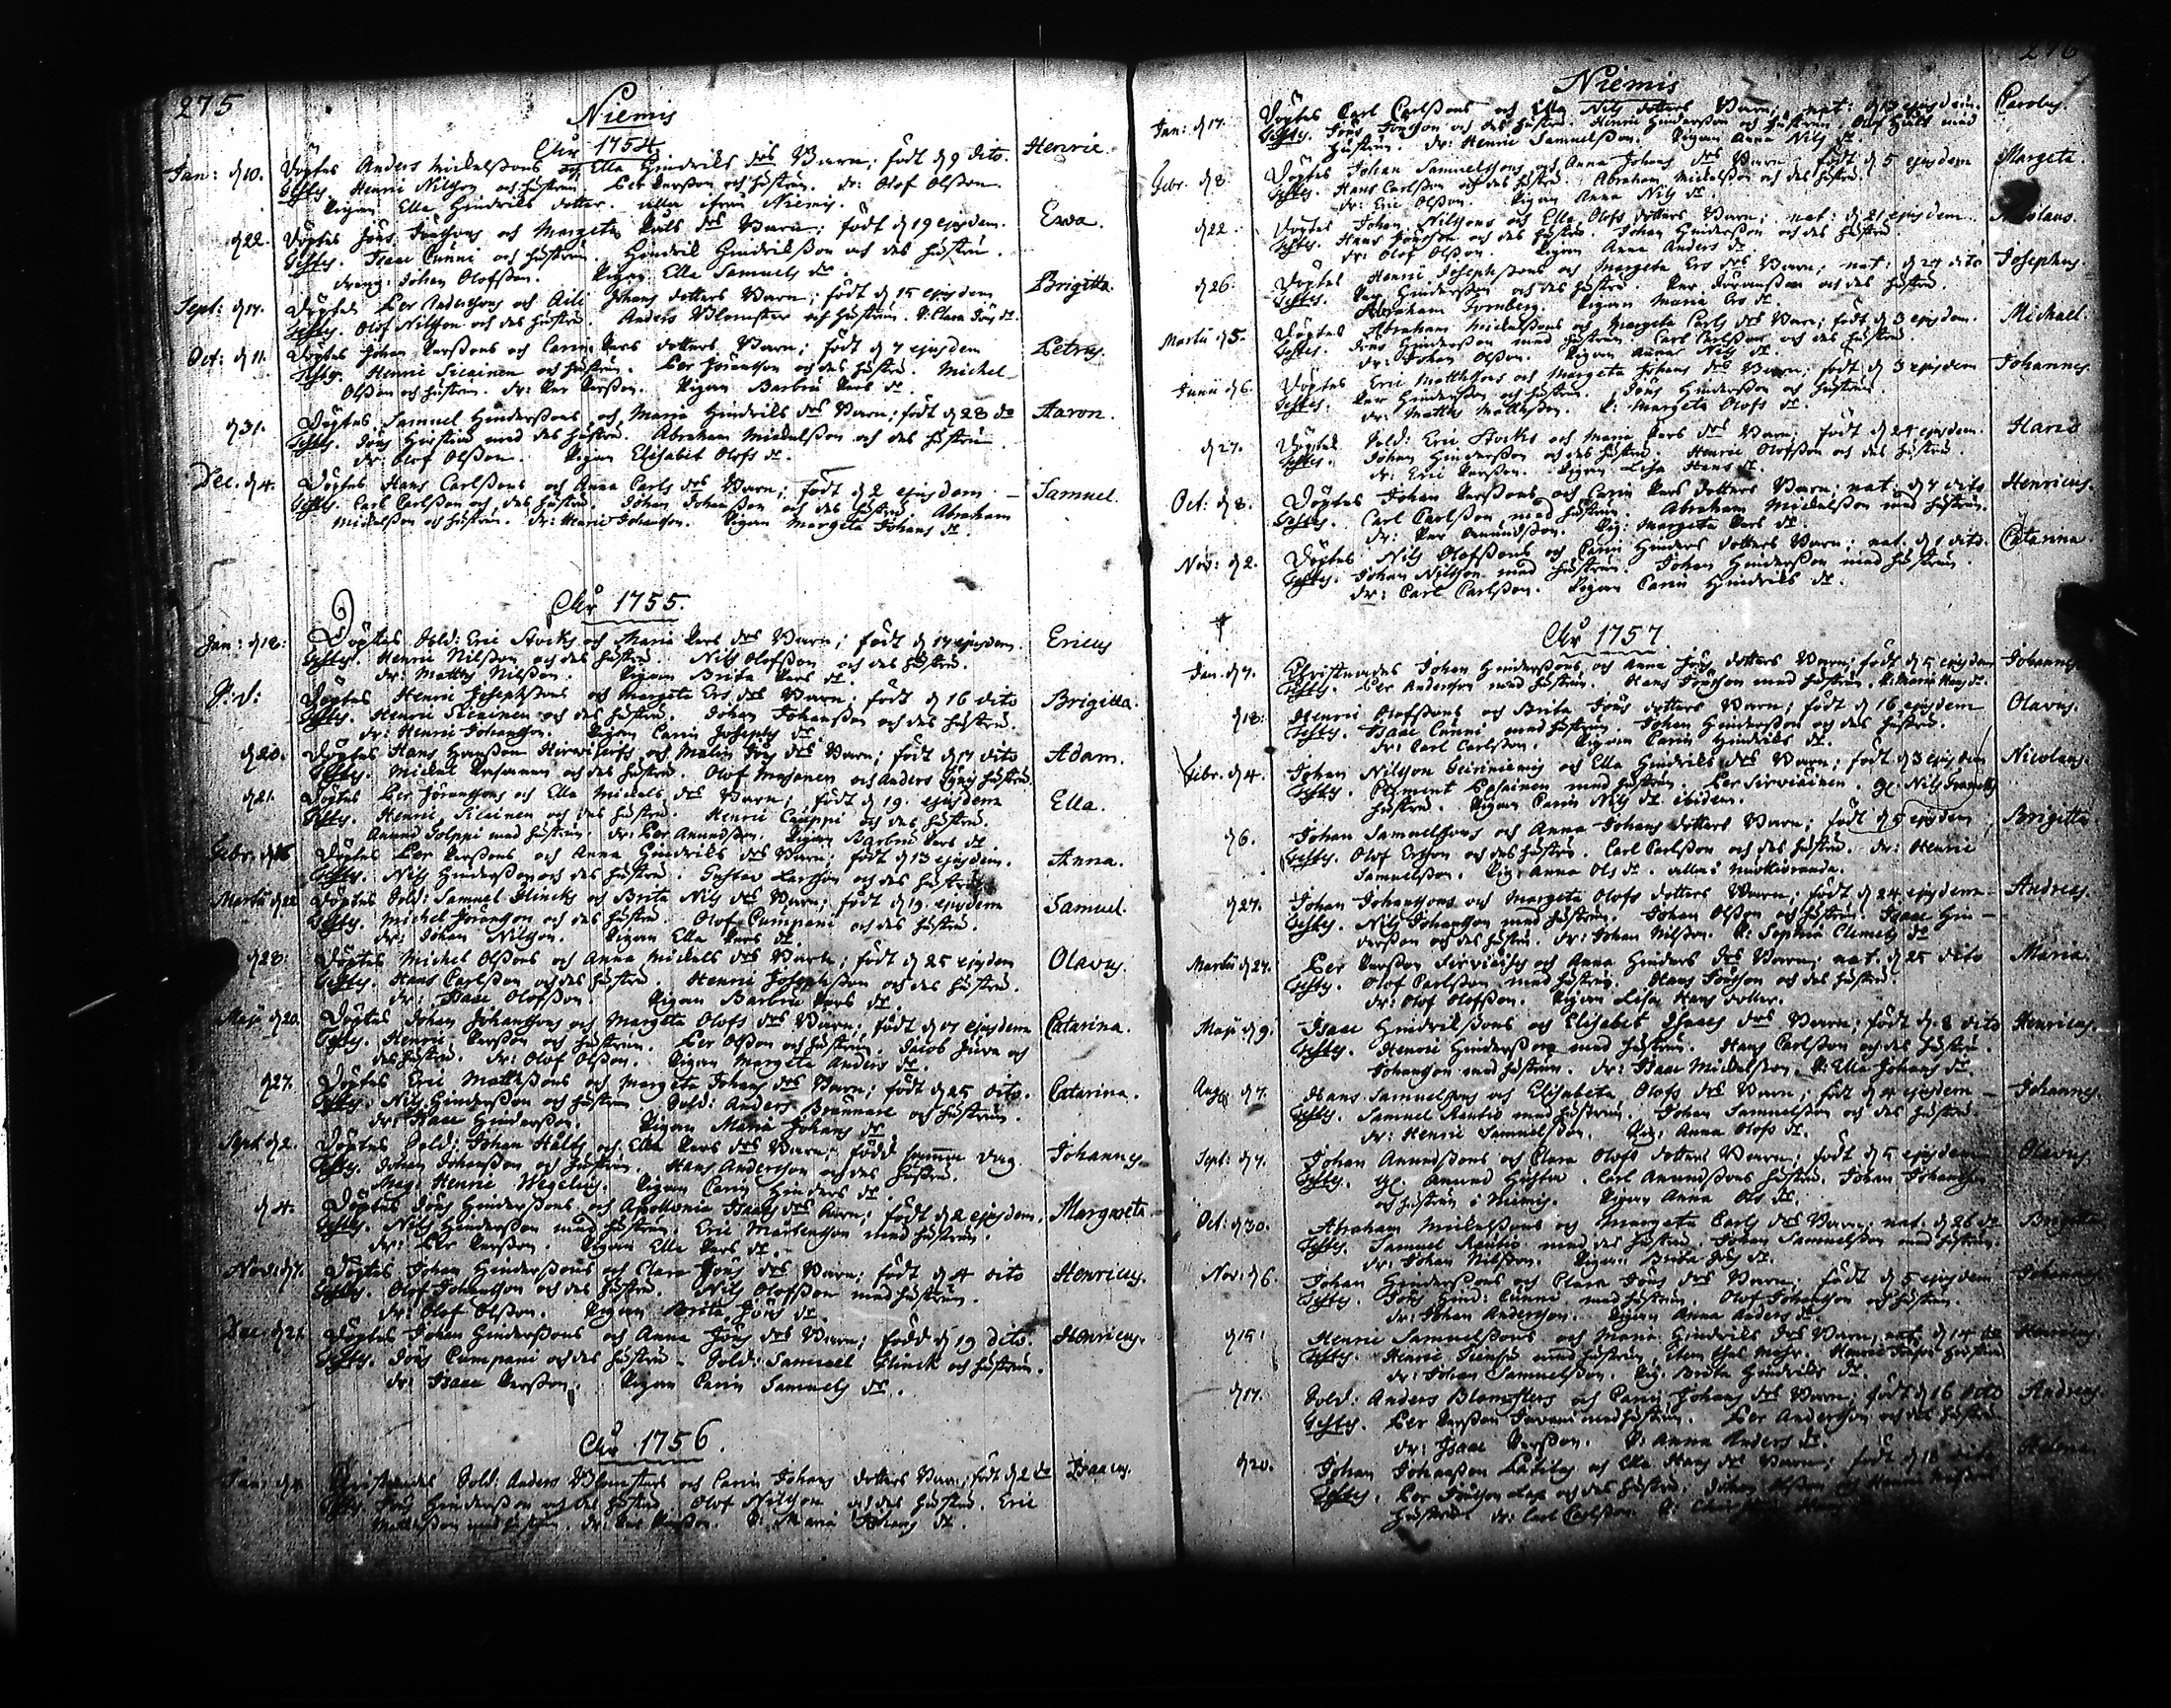 275
Niemis
Chr 1754
Jan: d 10. Döptes Anders Mickelßons och Ella Hindriks drs Barn; födt d 9 dito. Henric.
Testes. Henric Nilsson och hustru. Per Perßon och hustru. dr: Olof Olßon.
Pigan Ella Hindriks dotter. alla ifrån Niemis.
d 22. Döptes Jöns Jönssons och Margeta Påls drs Barn; födt d 19 ejusdem. Ewa.
Testes. Isaac Cunni och hustru. Hindrik Hindrikßon och des hustru.
dreng: Johan Olofsson. Pigan Ella Samuels dr.
Sept: d 17. Döptes Per Anderssons och Aili Johans dotters Barn; födt d 15 ejusdem Brigitta.
Testes. Olof Nilsson och des hustru. Anders Blomster och hustru. P: Clara Jöns dr.
Oct: d 11. Döptes Johan Perßons och Carin Pers dotters Barn; födt d 7 ejusdem Petrus.
Testes. Henric Sicainen och hustru. Per Jöransson och des hustru. Michel
Olßon och hustru. dr: Per Perßon. Pigan Barbru Pers dr.
d 31. Döptes Samuel Hinderßons och Maria Hindriks drs Barn; födt d 28 do Aaron.
Testes. Jöns med des hustru. Abraham Mickelßon och des hustru
dr: Olof Olßon. Pigan Elisabet Olofs dr.
Dec. d 4. Döptes Hans Carlßons och Anna Carls drs Barn; födt d 2 ejusdem. Samuel.
Testes. Carl Carlßon och des hustru. Johan Johanßon och des hustru. Abraham
Mickelßon och hustru. dr: Henric Johansson. Pigan Margeta Johans dr.
Chr 1755.
Jan: d 18: Döptes Sold: Eric Stocks och Maria Pers drs Barn; födt d 17 ejusdem. Ericus
Testes. Henric Nilßon och des hustru. Nils Olofßon och des hustru.
dr: Matths Nilßon. Pigan Brita Pers dr.
Döptes Henric Josephßons och Margeta Ers drs Barn; födt d 16 dito Brigitta.
Testes. Henric Sicainen och des hustru. Johan Johanßon och des hustru.
dr: Henric Johansson. Pigan Carin Josephs dr.
d 20. Döptes Hans Hansson och Malin Jöns drs Barn; födt d 17 dito Adam.
Testes. Mickel och des hustru. Olof Majanen och Anders hustru.
d 21. Döptes Per Jöranssons och Ella Mickels drs Barn; födt d 19. ejusdem Ella.
Testes. Henric Sicainen och des hustru. Henric Cauppi och des hustru.
Anund Jolppi med hustru. dr: Per Anundßon. Pigan Barbru Pers dr.
Febr. d 16 Döptes Per Perßons och Anna Hindriks drs Barn; födt d 13 ejusdem. Anna.
Testes. Nils Hinderßon och des hustru. Gustav Larsson och des hustru.
Martii d 22 Döptes Sold: Samuel Flincks och Brita Nils drs Barn; födt d 19. ejusdem Samuel.
Testes. Michel Jöransson och des hustru. Olof Cumpani och des hustru.
dr: Johan Nilsson. Pigan Ella Pers dr.
d 28: Döptes Michel Olßons och Anna Mickels drs Barn; födt d 25 ejusdem Olavus.
Testes. Hans Carlßon och des hustru. Henric Josephßon och des hustru.
dr: Isaac Olofßon. Pigan Barbru Pers dr.
Maji d 20. Döptes Johan Johanssons och Margeta Olofs drs Barn; födt d 17 ejusdem Catarina.
Testes. Henric Perßon och hustrun. Per Olßon och hustrun. Jacob Juva och
des hustru. dr: Olof Olßon. Pigan Margeta Anders dr.
d 27. Döptes Eric Matthßons och Margeta Johans drs Barn; födt d 25 dito. Catarina.
Testes. Nils Hinderßon och hustru. Sold: Anders Brunnare och hustrun.
dr: Isaac Hinderßon. Pigan Maria Johans dr.
Sept d 2. Döptes Sold: Johan Hults och Ella Pers drs Barn; född samma dag. Johannes.
Testes. Johan Johanßon och hustru. Hans Andersson och des hustru.
Mag: Henric Wegelius. Pigan Carin Hinders dr.
d 4. Döptes Jöns Hinderßons och Apollonia Isaacs drs Barn; födt d 2 ejusdem. Margareta
Testes. Nils Hinderßon med hustru. Eric Mårtensson med hustru.
dr: Per Perßon. Pigan Ella Pers dr.
Nov: d 7. Döptes Johan Hinderßons och Clara Jöns drs Barn; födt d 4 dito Henricus.
Testes. Olof Johansson och des hustru. Nils Olofßon med hustru.
dr: Olof Olßon. Pigan Brita Jöns dr.
Dec: d 21. Döptes Johan Hinderßons och Anna Jöns drs Barn; född d 19 dito. Henricus.
Testes. Jöns Cumpani och des hustru. Sold: Samuel Flinck och hustru.
dr: Isaac Perßon. Pigan Carin Samuels dr.
Chr 1756.
Jan: Christnades Sold: Anders Blomsters och Carin Johans dotters Barn; födt d 2 do Isaacus.
Testes. Jöns Hinderßon och des hustru. Olof Nilsson och des hustru. Eric
Matthßon med hustru. dr: Per Perßon. P: Maria Johans dr.
276
Niemis
Jan: d 17. Döptes Carl Carlßons och Ella Nils dotters Barn; nat: d 13 ejusdem. Carolus.
Testes. Jöns Jönsson och des hustru. Henric Hinderßon och hustru. Olof Hult med
hustru. dr: Henric Samuelßon. Pigan Anna Nils dr.
Febr. d 8. Döptes Johan Samuelssons och Anna Johans drs Barn; födt d 5 ejusdem Margeta.
Testes. Hans Carlßon och des hustru. Abraham Mickelßon och des hustru
dr: Eric Olßon. Pigan Anna Nils dr.
d 22. Döptes Johan Nilssons och Ella Olofs dotters Barn; nat: d 21 ejusdem. Nicolaus.
Testes. Hans Jönsson och des hustru. Johan Hinderßon och des hustru.
dr: Olof Olßon. Pigan Anna Anders dr
d 26. Döptes Henric Josephßons och Margeta Ers drs Barn; nat: d 24 dito Josephus.
Testes. Per Hinderßon och des hustru. Per Jöransson och des hustru
Abraham Fornberg. Pigan Maria Ers dr.
Martii d 5. Döptes Abraham Mickelßons och Margeta Carls drs Barn; födt d 3 ejusdem. Michael.
Testes. Jöns Hinderßon med hustru. Carl Carlßon och des hustru.
dr: Johan Olßon. Pigan Anna Nils dr.
Junii d 6. Döptes Eric Matthssons och Margeta Johans drs Barn; födt d 3 ejusdem Johannes.
Testes. Per Hinderßon och hustru. Jöns Hinderßon och hustru
dr: Matths Matthßon. P: Margeta Olofs dr.
d 27. Döptes Sold: Eric Stocks och Maria Pers drs Barn; födt d 24 ejusdem. Maria
Testes. Johan Hinderßon och des hustru. Henric Olofßon och des hustru.
dr: Eric Perßon. Pigan Lisa Hans dr.
Oct: d 8. Döptes Johan Perßons och Carin Pers dotters Barn; nat. d 7 dito Henricus.
Testes. Carl Carlßon med hustru. Abraham Mickelßon med hustru.
dr: Per Anundßon. Pig: Margeta Pers dr.
Nov: d 2. Döptes Nils Olofßons och Carin Hinders dotters Barn; nat. d 1 dito. Catarina.
Testes. Johan Nilsson med hustru. Johan Hinderßon med hustru.
dr: Carl Carlßon. Pigan Carin Hindriks dr.
Chr 1757.
Jan. d 7. Christnades Johan Hinderßons och Anna Jöns dotters Barn; födt d 5 ejusdem Johannes.
Testes. Per Andersson med hustru. Hans Jönsson med hustru. P: Maria Hans dr.
d 18: Henric Olofßons och Brita Jöns dotters Barn; födt d 16 ejusdem Olavus.
Testes. Isaac Cunni med hustru. Johan Hinderßon och des hustru.
dr: Carl Carlßon. Pigan Carin Hindriks dr.
Febr. d 4. Johan Nilsson och Ella Hindriks drs Barn; födt d 3 ejusdem Nicolaus.
Testes. Clement med hustru. Per Sirviäinen. gl: Nils
hustru. Pigan Carin Nils dr. ibidem.
d 6. Johan Samuelssons och Anna Johans dotters Barn; födt d 5 ejusdem Brigitta
Testes. Olof Ersson och des hustru. Carl Carlßon och des hustru. dr: Henric
Samuelßon. Pig: Anna Ols dr. alla i
d 27. Johan Johanssons och Margeta Olofs dotters Barn; födt d 24 ejusdem Andreas.
Testes. Nils Johansson med hustru. Johan Olsson och hustru. Isaac Hin-
derßon och des hustru. dr: Johan Nilßon. P: Sophia Clemets dr
Martii d 27. Per Perßon och Anna Hinders drs Barn; nat. d 25 dito Maria.
Testes. Olof Carlßon med hustru. Hans Jönsson och des hustru.
dr: Olof Olofßon. Pigan Lisa Hans dotter.
Maji d 9. Isaac Hindrikßons och Elisabet Isaacs drs Barn; födt d. 8 dito Henricus.
Testes. Henric Hinderßon med hustru. Hans Carlßon och des hustru.
Johansson med hustru. dr: Isaac Mickelßon. P: Ella Johans dr.
Aug: d 7. Hans Samuelssons och Elisabeta Olofs drs Barn; födt d 4 ejusdem Johannes.
Testes. Samuel Rautio med hustru. Johan Samuelßon och des hustru.
dr: Henric Samuelßon. Pig: Anna Olofs dr.
Sept: d 7. Johan Anundßons och Clara Olofs dotters Barn; födt d 5 ejusdem Olavus
Testes. gl. Anund hustru. Carl Anundßons hustru. Johan Johansson
och hustru i Niemis. Pigan Anna Ols dr.
Oct: d 30. Abraham Mickelßons och Margeta Carls drs Barn; nat. d 26 do Brigitta
Testes. Samuel Rautio med des hustru. Johan Samuelßon med hustru.
dr: Johan Nilßon. Pigan Brita Jöns dr.
Nov: d 6. Johan Hinderßons och Clara Jöns drs Barn; födt d 5 ejusdem Johannes
Testes. Jöns Hind: Cunni med hustru. Olof Johansson och hustru.
dr: Johan Andersson. Pigan Anna Anders dr.
d 15: Henric Samuelßons och Maria Hindriks drs Barn, nat. d 14 do Henricus
Testes. Henric med hustru, item Henric hustru
dr: Johan Samuelßon. Pig: Brita Hindriks dr.
d 17. Sold: Anders Blomsters och Carin Johans drs Barn; födt d 16 dito Andreas
Testes. Per Perßon med hustru. Per Andersson och des hustru
dr: Isaac Perßon. P: Anna Anders dr.
d 20. Johan Johanßon och Ella Hans drs Barn; födt d 18 dito Helena
Testes. Per Jönsson och des hustru. Johan Olßon och Henric
hustru. dr: Carl Carlßon. P: